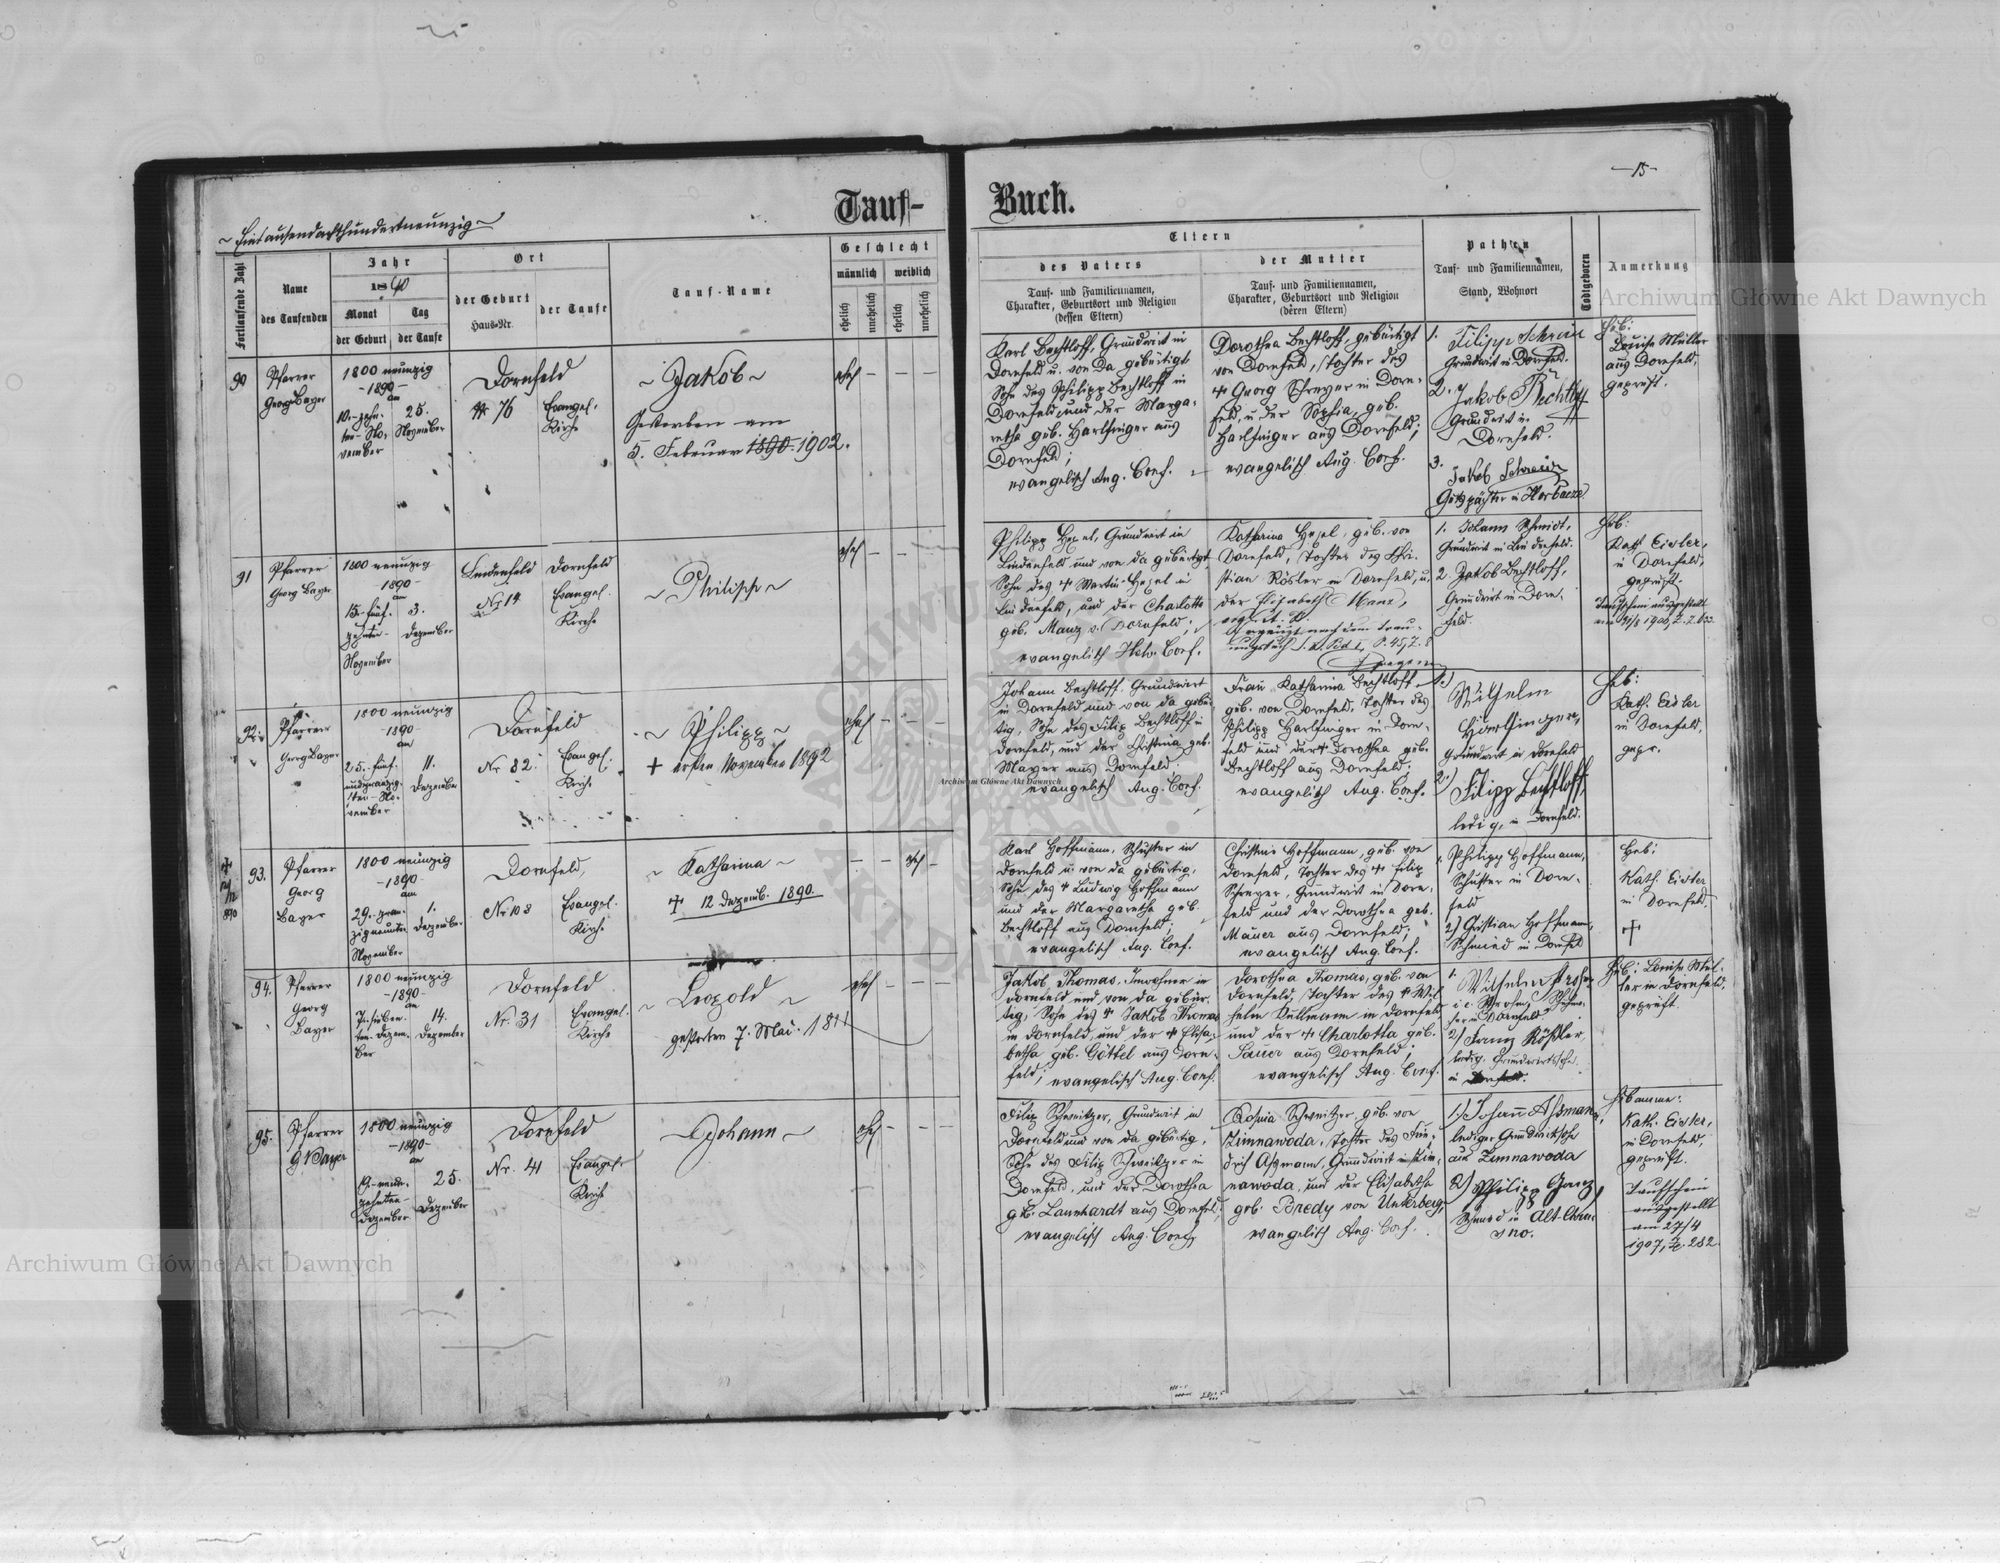 Tauf-
Buch.
-15-
~ Eintausendachthundertneunzig ~
Fortlaufende Zahl
Name
des Taufenden
Jahr
1890
Monat
der Geburt
Tag
der Taufe
Ort
der Geburt
Haus-Nr.
der Taufe
Tauf-Name
Geschlecht
männlich
weiblich
ehelich
unehelich
ehelich
unehelich
Eltern
des Vaters
Tauf- und Familiennamen,
Charakter, Geburtsort und Religion
(dessen Eltern)
der Mutter
Tauf- und Familiennamen,
Charakter, Geburtsort und Religion
(deren Eltern)
Pathen
Tauf- und Familiennamen,
Stand, Wohnort
Todtgeboren
Anmerkung
90
Pfarrer
Georg Bayer
1800 neunzig
-1890-
am
10.-zehn-
ten-No-
vember
25.
November
Dornfeld
№ 76
Evangel.
Kirche
~ Jakob ~
Gestorben am
5. Februar 1890. 1902.
ehel
Karl Bechtloff, Grundwirt in
Dornfeld u. von da gebürtigt
Sohn des Philipp Bechtloff in
Dornfeld, und der Marga-
retha geb. Harlfinger aus
Dornfeld;
evangelisch Aug. Conf.
Dorothea Bechtloff, gebürtigt
von Dornfeld, Tochter des
+ Georg Schreyer in Dorn-
feld, u. der Sophia, geb.
Harlfinger aus Dornfeld;
evangelisch Aug. Conf.
1.
Filipp Schweitz
Grundwirt in Dornfeld.
2. Jakob Bechtloff
Grundwirt in
Dornfeld.
3.
Jakob
Gutspächter in
Heb:
Louise Müller
aus Dornfeld,
geprüft.
91
Pfarrer
Georg Bayer
1800 neunzig
-1890-
am
15.-fünf-
zehnten-
November
3.
Dezember
Lindenfeld
Nr 14
Dornfeld
Evangel.
Kirche
~ Philipp ~
ehel
Philipp Hexel, Grundwirt in
Lindenfeld und von da gebürtigt
Sohn des + Martin Hexel in
Lindenfeld, und der Charlotte
geb. Manz v. Dornfeld;
evangelisch Helv. Conf.
Katharina Hexel, geb. von
Dornfeld, Tochter des Chri-
stian Rösler in Dornfeld, u.
der Elisabeth Manz,
1. Johann Schmidt,
Grundwirt in Lindenfeld.
2. Jakob Bechtloff,
Grundwirt in Dorn-
feld.
Heb:
Kath Eisler,
in Dornfeld,
geprüft.
Taufschein ausgestellt
92.
Pfarrer
Georg Bayer
1800 neunzig
-1890-
am
25.-fünf-
undzwanzig-
sten-No-
vember
11.
Dezember
Dornfeld
Nr 82.
Evangel.
Kirche
~ Philipp ~
+ ersten November 1892
ehel
Johann Bechtloff, Grundwirt
in Dornfeld und von da gebür-
tig, Sohn des Filip Bechtloff in
Dornfeld, und der Christina geb.
Mayer aus Dornfeld.
evangelisch Aug. Conf.
Frau Katharina Bechtloff
geb. von Dornfeld, Tochter des
Philipp Harlfinger in Dorn-
feld und der + Dorothea geb.
Bechtloff aus Dornfeld;
evangelisch Aug. Conf.
1.)
Wilhelm
Harlfinger,
Grundwirt in Dornfeld
2.)
Filipp Bechtloff,
ledig, in Dornfeld.
Heb:
Kath. Eisler
in Dornfeld,
gepr.
93.
Pfarrer
Georg
Bayer
1800 neunzig
-1890-
am
29.-zwan-
zigneunten
November
1.
Dezember
Dornfeld,
Nr 108
Evangel.
Kirche
~ Katharina ~
+ 12 Dezemb. 1890.
ehel
Karl Hoffmann, Schuster in
Dornfeld u. von da gebürtig,
Sohn des + Ludwig Hoffmann
und der Margaretha geb.
Bechtloff aus Dornfeld;
evangelisch Aug. Conf.
Christine Hoffmann, geb. von
Dornfeld, Tochter des + Filip
Schreyer, Grundwirt in Dorn-
feld und der Dorothea geb.
Mauer aus Dornfeld;
evangelisch Aug. Conf.
Philipp Hoffmann,
Schuster in Dorn-
feld
2) Christian Hoffmann,
Schmied in Dornfeld
Heb:
Kath. Eisler
in Dornfeld.
+
94.
Pfarrer
Georg
Bayer
1800 neunzig
-1890-
am
7.-sieben-
ten-Dezem-
ber
14.
Dezember
Dornfeld
Nr. 31
Evangel.
Kirche
~ Leopold ~
gestorben 7. Mai.
ehel
Jakob Thomas, Inwohner in
Dornfeld und von da gebür-
tig, Sohn des + Jakob Thomas
in Dornfeld, und der + Elisa-
betha geb. Göttel aus Dorn-
feld; evangelisch Aug. Conf.
Dorothea Thomas, geb. von
Dornfeld, Tochter des + Wil-
helm Bullmann in Dornfeld
und der + Charlotta geb.
Sauer aus Dornfeld;
evangelisch Aug. Conf.
1.
Wilhelm
2) Franz Rößler,
ledig, Grundwirtssohn
in Dornfeld.
Heb: Louise Mül-
ler in Dornfeld,
geprüft.
95.
Pfarrer
G Bayer
1800 neunzig
-1890-
am
19.-neun-
zehnten-
Dezember
25.
Dezember
Dornfeld
Nr. 41
Evangel.
Kirche
~ Johann ~
ehel
Filip Schweitzer, Grundwirt in
Dornfeld und von da gebürtig,
Sohn des Filip Schweitzer in
Dornfeld, und der Dorothea
geb. Launhardt aus Dornfeld;
evangelisch Aug. Conf.
Rosina Schweitzer, geb. von
Zimnawoda, Tochter des Frie-
drich Aßmann, Grundwirt in Zim-
nawoda, und der Elisabetha
geb. Bredy von Unterberg,
evangelisch Aug. Conf.
1.) Johann Aßmann,
lediger Grundwirtssohn
aus Zimnawoda
2.) Philipp Ganz,
Schmied in Alt-Chru-
sno.
Hebamme:
Kath. Eisler,
in Dornfeld,
geprüft.
Taufschein
ausgestellt
am 27/4
1907, Z. 282.
Archiwum Główne Akt Dawnych
Archiwum Główne Akt Dawnych
Archiwum Główne Akt Dawnych